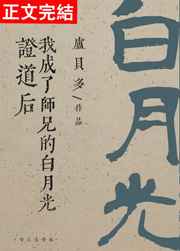 正文完結
白月光
盧貝多/作品
證道后
我成了師兄的白月光